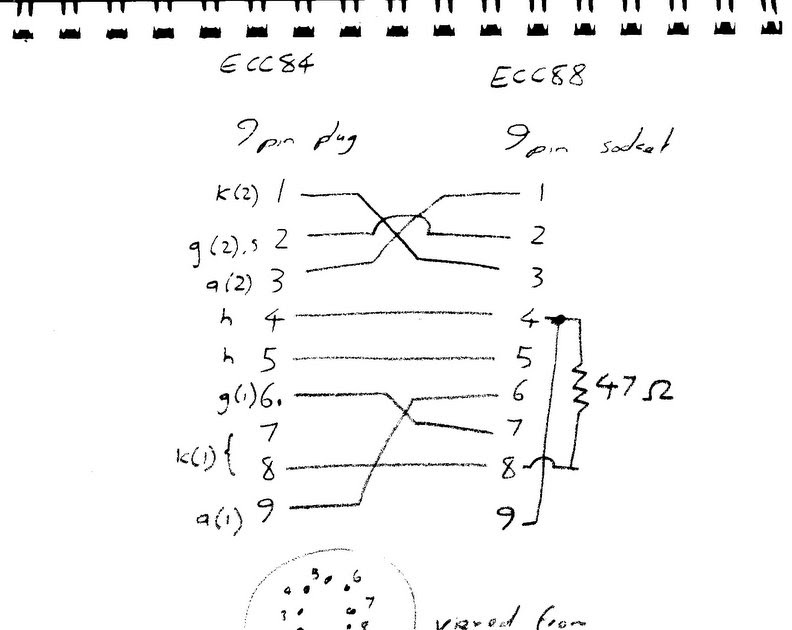 ECC84 ECC88
9 pin plug 9 pin socket
k(2) 1 1
g(2).s 2 2
a(2) 3 3
h 4 4
h 5 5
g(1) 6. 6
7 7
47 Ω
k(1) { 8 8
a(1) 9 9
5 6
4
7
3
8
from